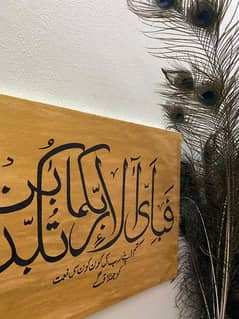 فَبِأَيِّ آلَاءِ رَبِّكُمَا
تم اپنے رب کی کون کون سی نعمت
کو جھٹلاؤ گے